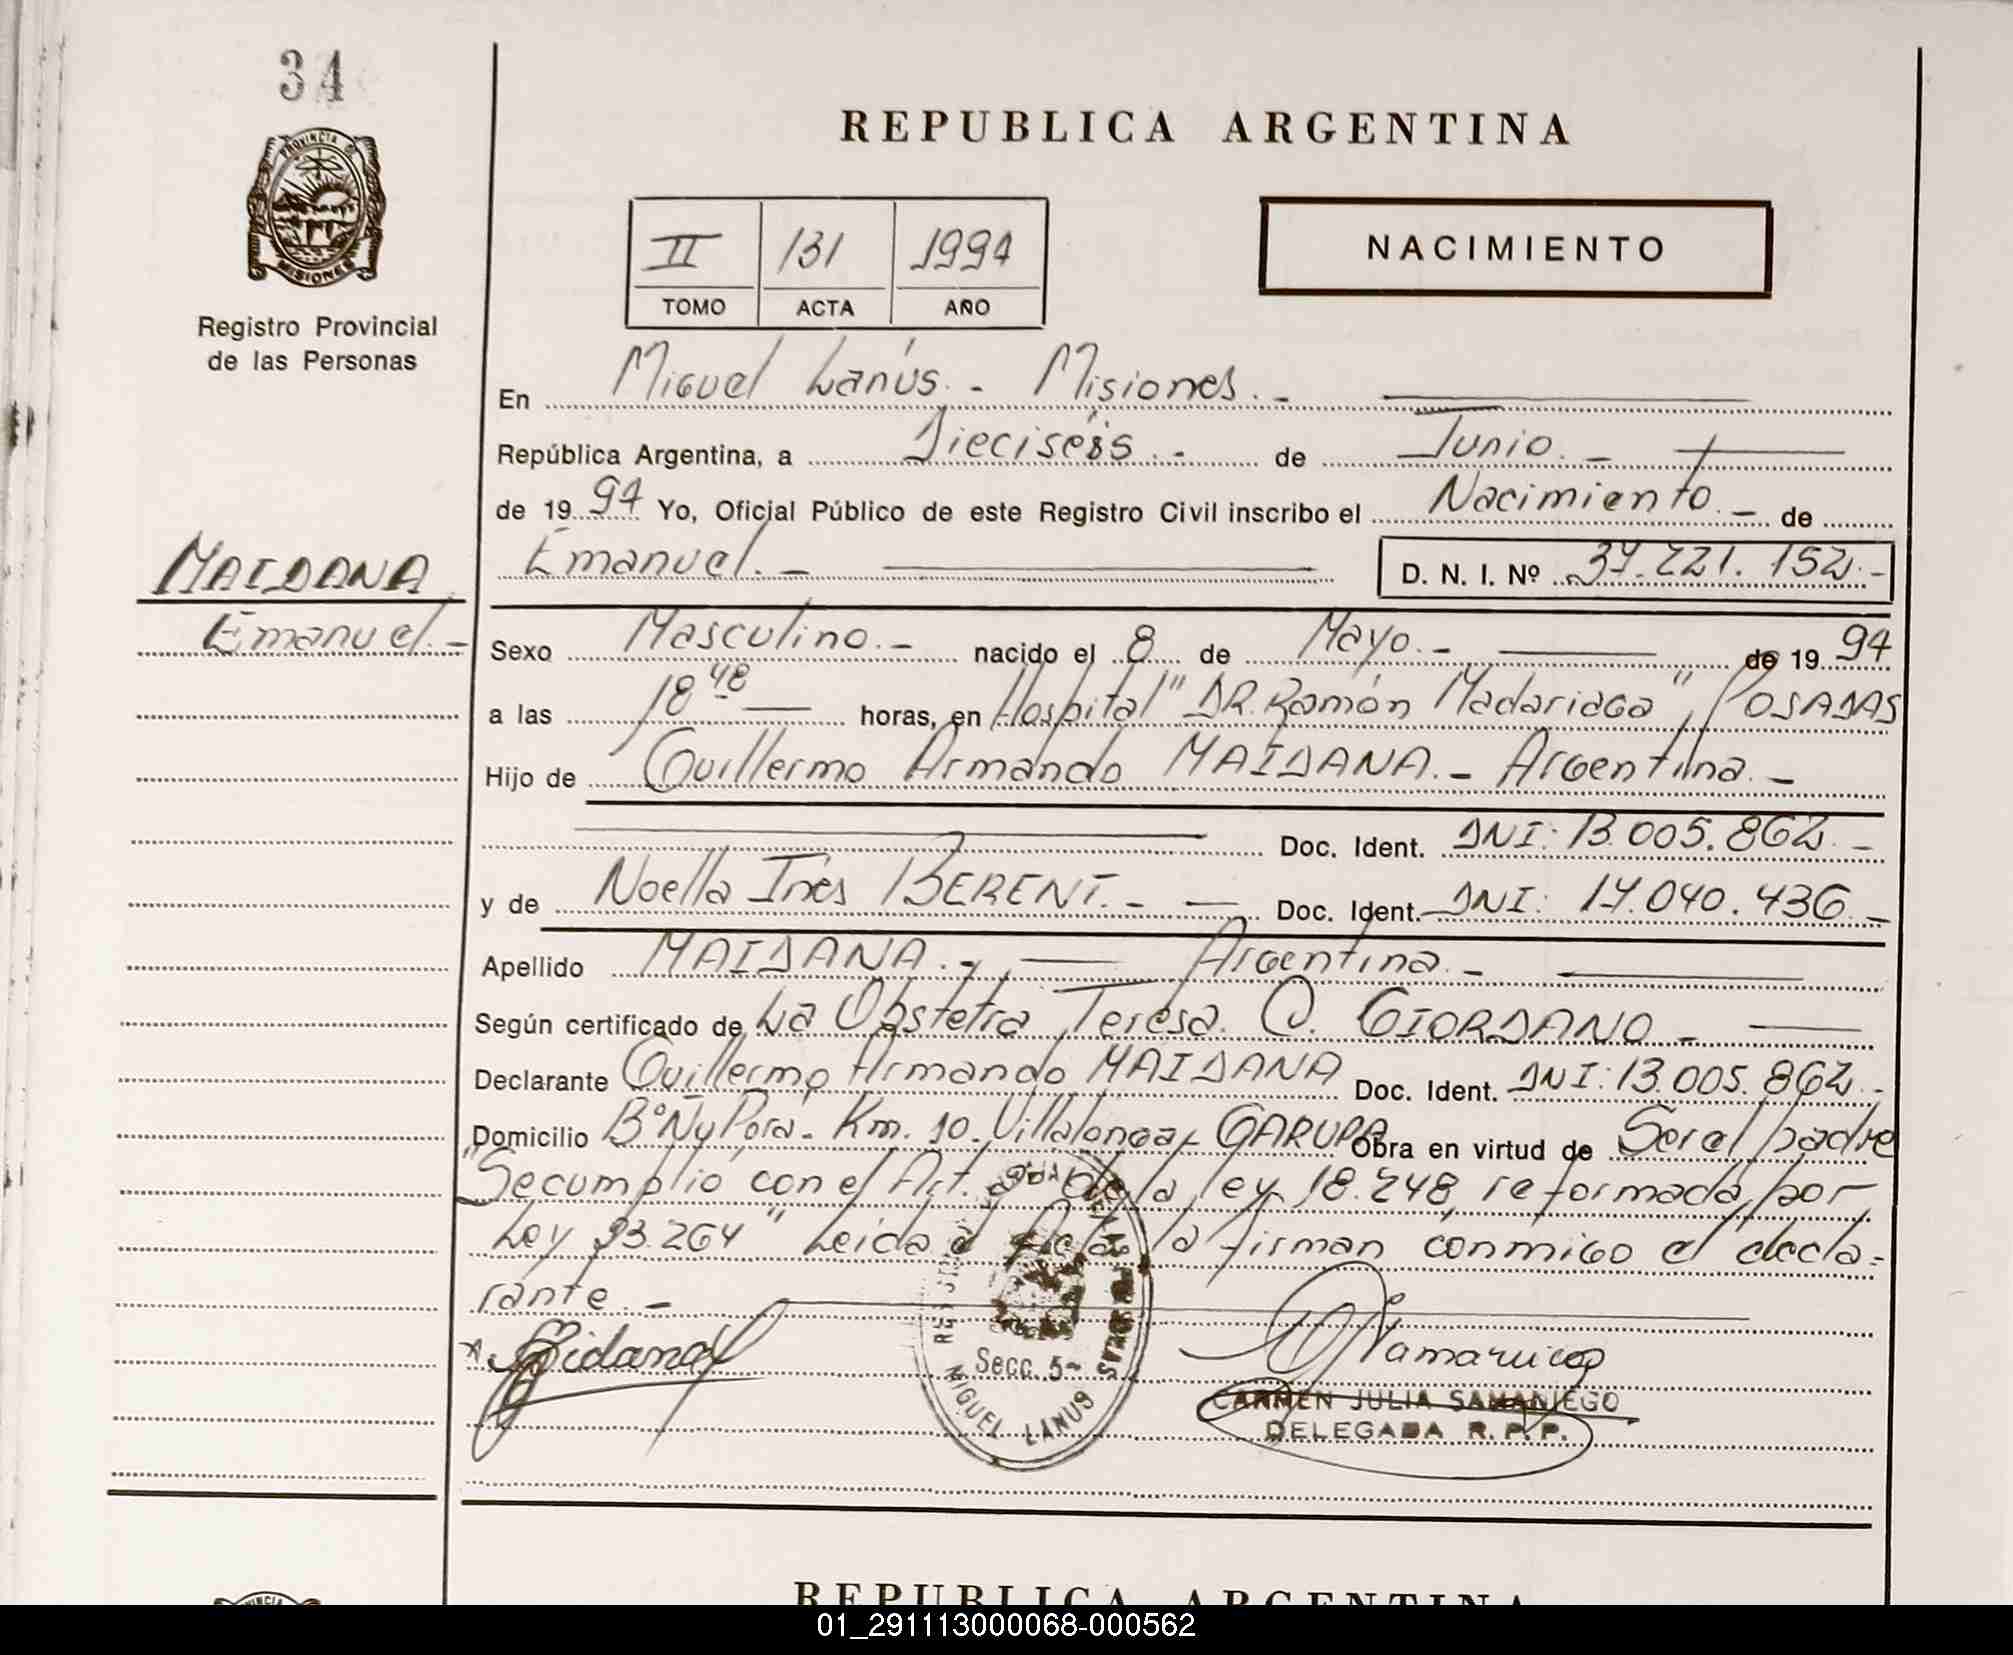 34
PROVINCIA DE
MISIONES
Registro Provincial
de las Personas
REPUBLICA ARGENTINA
II 131 1994
TOMO ACTA AÑO
NACIMIENTO
En Miguel Lanús.- Misiones.-
República Argentina, a Dieciséis.- de Junio.-
de 1994 Yo, Oficial Público de este Registro Civil inscribo el Nacimiento.- de
Emanuel.- D. N. I. Nº 37.221.152.-
MAIDANA
Emanuel.-
Sexo Masculino.- nacido el 8 de Mayo.- de 1994
a las 18 48 horas, en Hospital "DR. Ramón Madariaga", POSADAS
Hijo de Guillermo Armando MAIDANA.- Argentina.-
Doc. Ident. DNI: 13.005.862.-
y de Noella Inés BERENT.- Doc. Ident. DNI: 17.040.436.-
Apellido MAIDANA.- Argentina.-
Según certificado de La Obstetra Teresa O. GIORDANO.-
Declarante Guillermo Armando MAIDANA Doc. Ident. DNI: 13.005.862.-
Domicilio Bº Ñu Porá. Km. 10. Villalonga, GARUPA Obra en virtud de Ser el padre
"Se cumplió con el Art. de la ley 18.248, reformada por
Ley 23.264" Leída el Acta la firman conmigo el decla=
rante.-
Secc. 5
MIGUEL LANUS
CARMEN JULIA SAMANIEGO
DELEGADA R.P.P.
REPUBLICA ARGENTINA
01_291113000068-000562